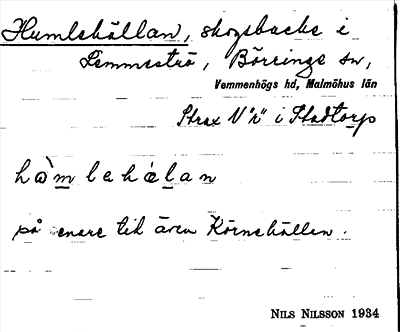 Humlehällan, skogsbacke i
Lemmeströ, Börringe sn,
Vemmenhögs hd, Malmöhus län
Strax V "h" i Stadtorp
hòm lehálan
på senare tid även Körnehällan.
NILS NILSSON 1934